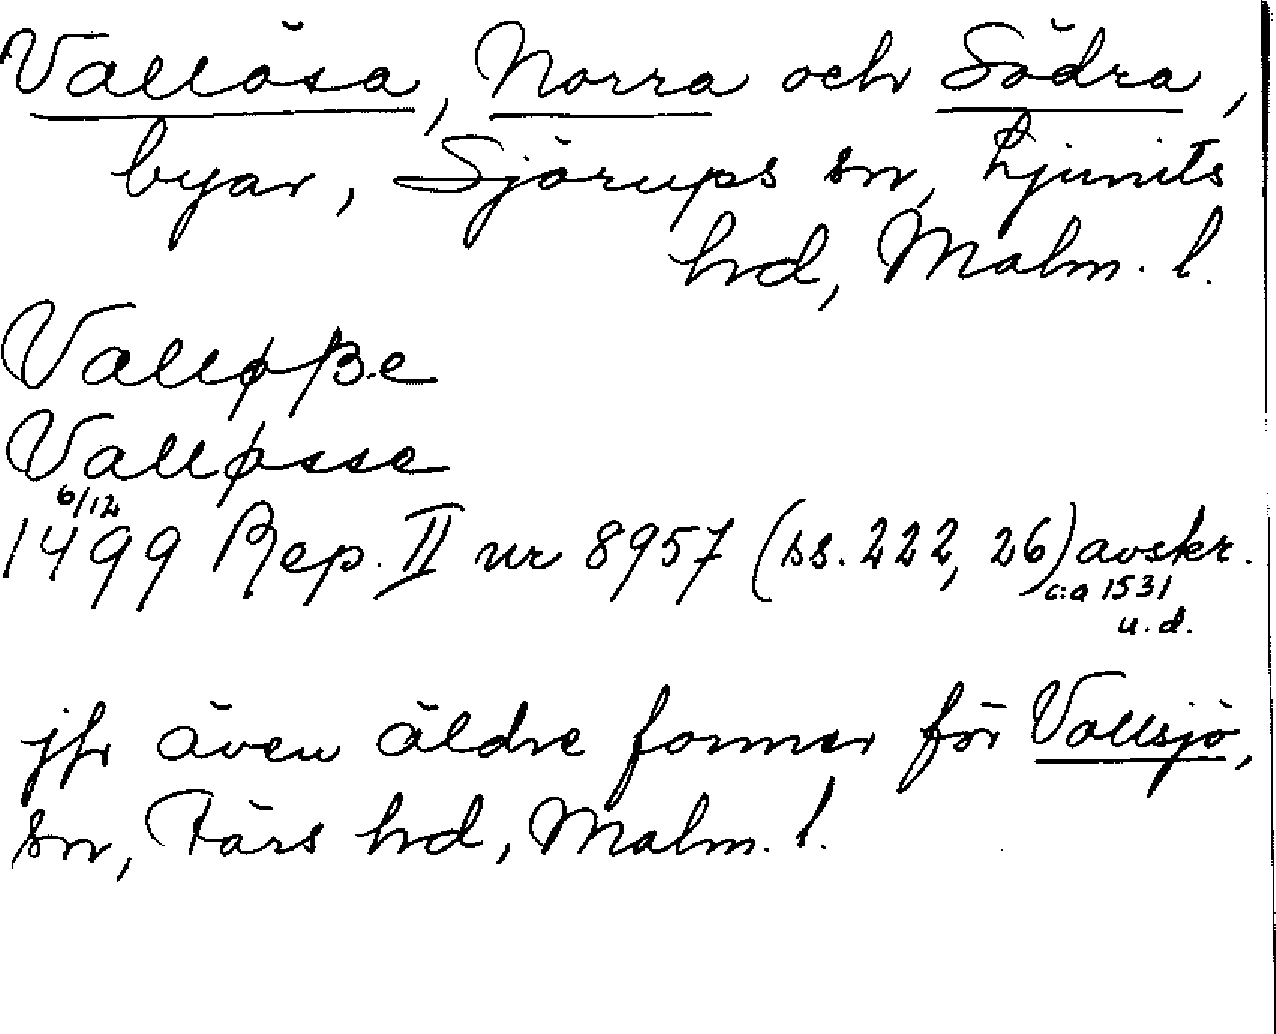 Vallösa, Norra och Södra,
byar, Sjörups sn, Ljunits
hrd, Malm. l.
Valløße
Valløsse
6/12
1499 Rep. II nr 8957 (ss. 222, 26) avskr.
c:a 1531
u. d.
jfr även äldre former för Vallsjö,
sn, Färs hrd, Malm. l.